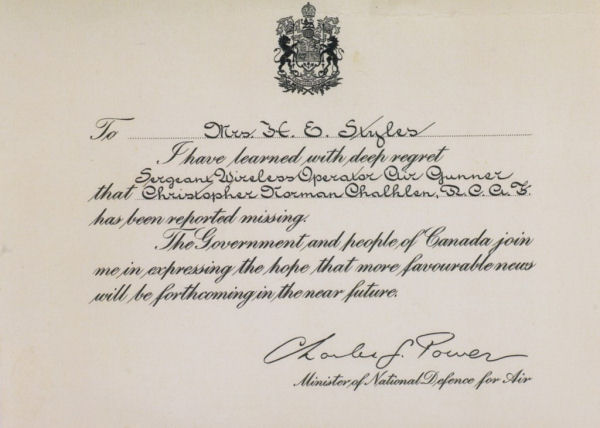 To Mrs. H. E. Skyles
I have learned with deep regret
Sergeant Wireless Operator Air Gunner
that Christopher Norman Chalklen, R.C.A.F.
has been reported missing.
The Government and people of Canada join
me in expressing the hope that more favourable news
will be forthcoming in the near future.
Charles G. Power
Minister of National Defence for Air